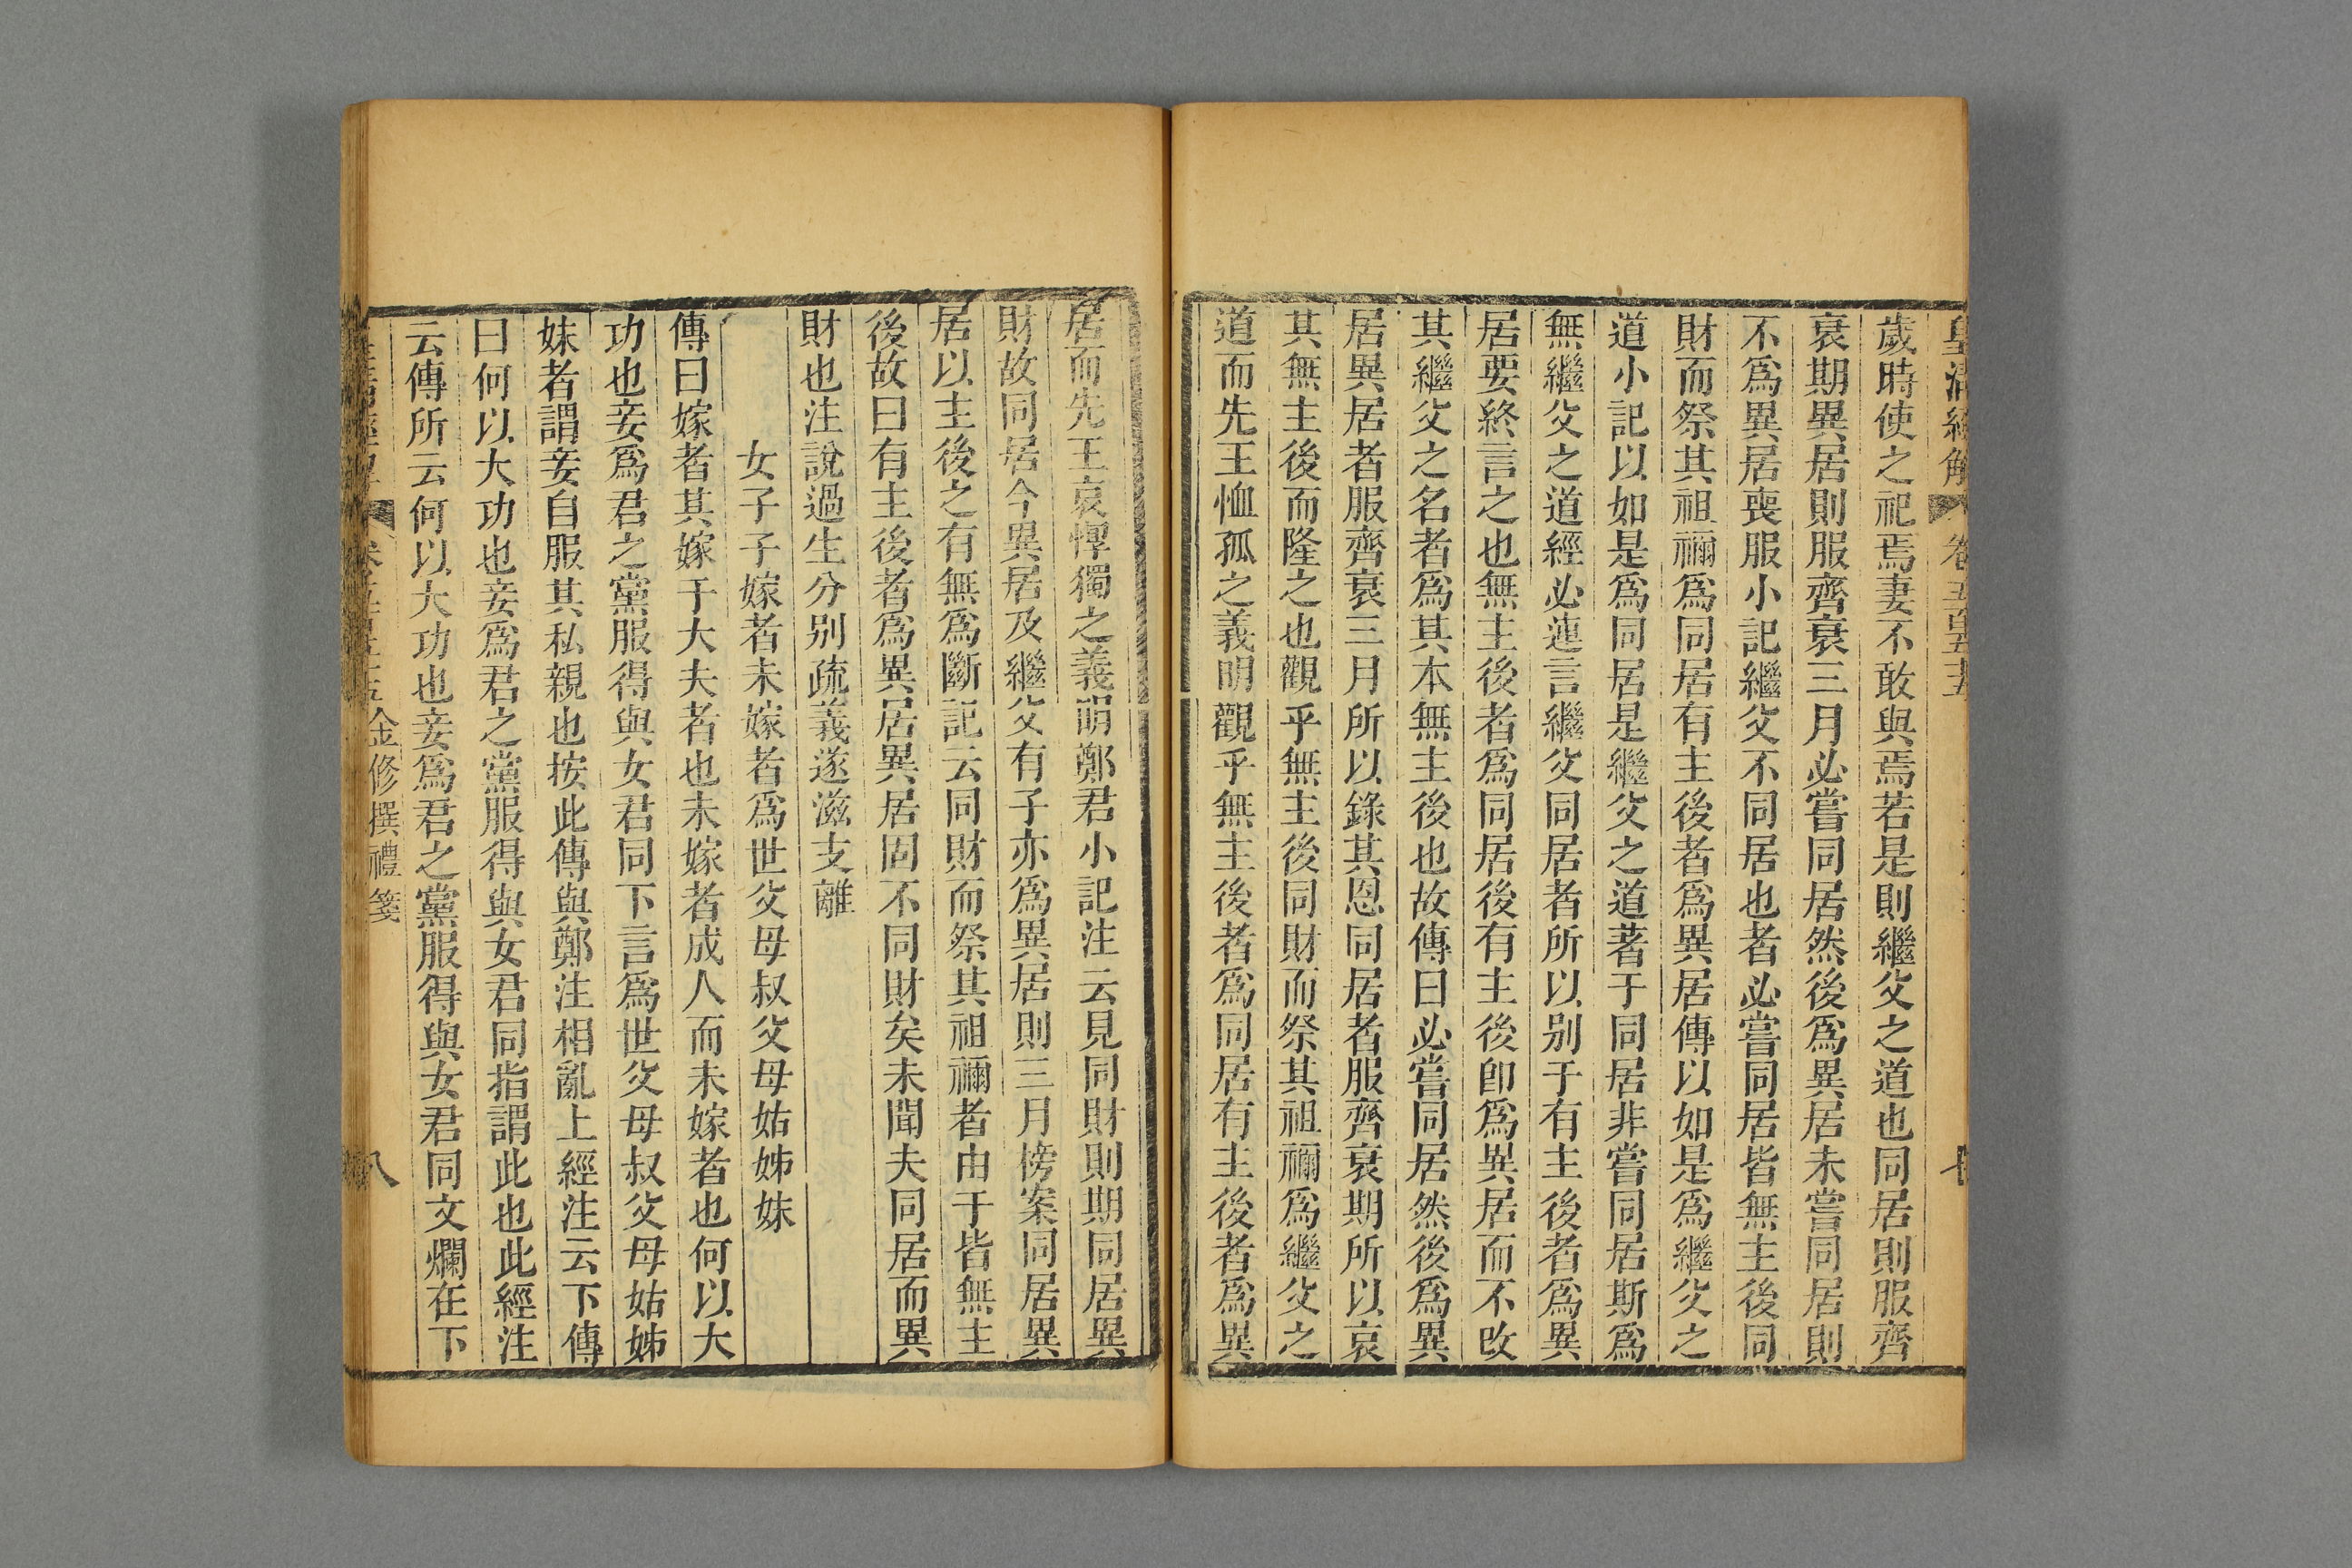 皇清經解 卷五百五十五
歲時使之祀焉妻不敢與焉若是則繼父之道也同居則服齊
衰期異居則服齊衰三月必嘗同居然後爲異居未嘗同居則
不爲異居喪服小記繼父不同居也者必嘗同居皆無主後同
財而祭其祖禰爲同居有主後者爲異居傳以如是爲繼父之
道小記以如是爲同居是繼父之道著于同居非嘗同居斯爲
無繼父之道經必連言繼父同居者所以别于有主後者爲異
居要終言之也無主後者爲同居後有主後卽爲異居而不改
其繼父之名者爲其本無主後也故傳曰必嘗同居然後爲異
居異居者服齊衰三月所以錄其恩同居者服齊衰期所以哀
其無主後而隆之也觀乎無主後同財而祭其祖禰爲繼父之
道而先王恤孤之義明觀乎無主後者爲同居有主後者爲異
居而先王哀惸獨之義明鄭君小記注云見同財則期同居異
財故同居今異居及繼父有子亦爲異居則三月榜案同居異
居以主後之有無爲斷記云同財而祭其祖禰者由于皆無主
後故曰有主後者爲異居異居固不同財矣未聞夫同居而異
財也注說過生分别疏義遂滋支離
女子子嫁者未嫁者爲世父母叔父母姑姊妹
傳曰嫁者其嫁于大夫者也未嫁者成人而未嫁者也何以大
功也妾爲君之黨服得與女君同下言爲世父母叔父母姑姊
妹者謂妾自服其私親也按此傳與鄭注相亂上經注云下傳
曰何以大功也妾爲君之黨服得與女君同指謂此也此經注
云傳所云何以大功也妾爲君之黨服得與女君同文爛在下
金修撰禮箋 八